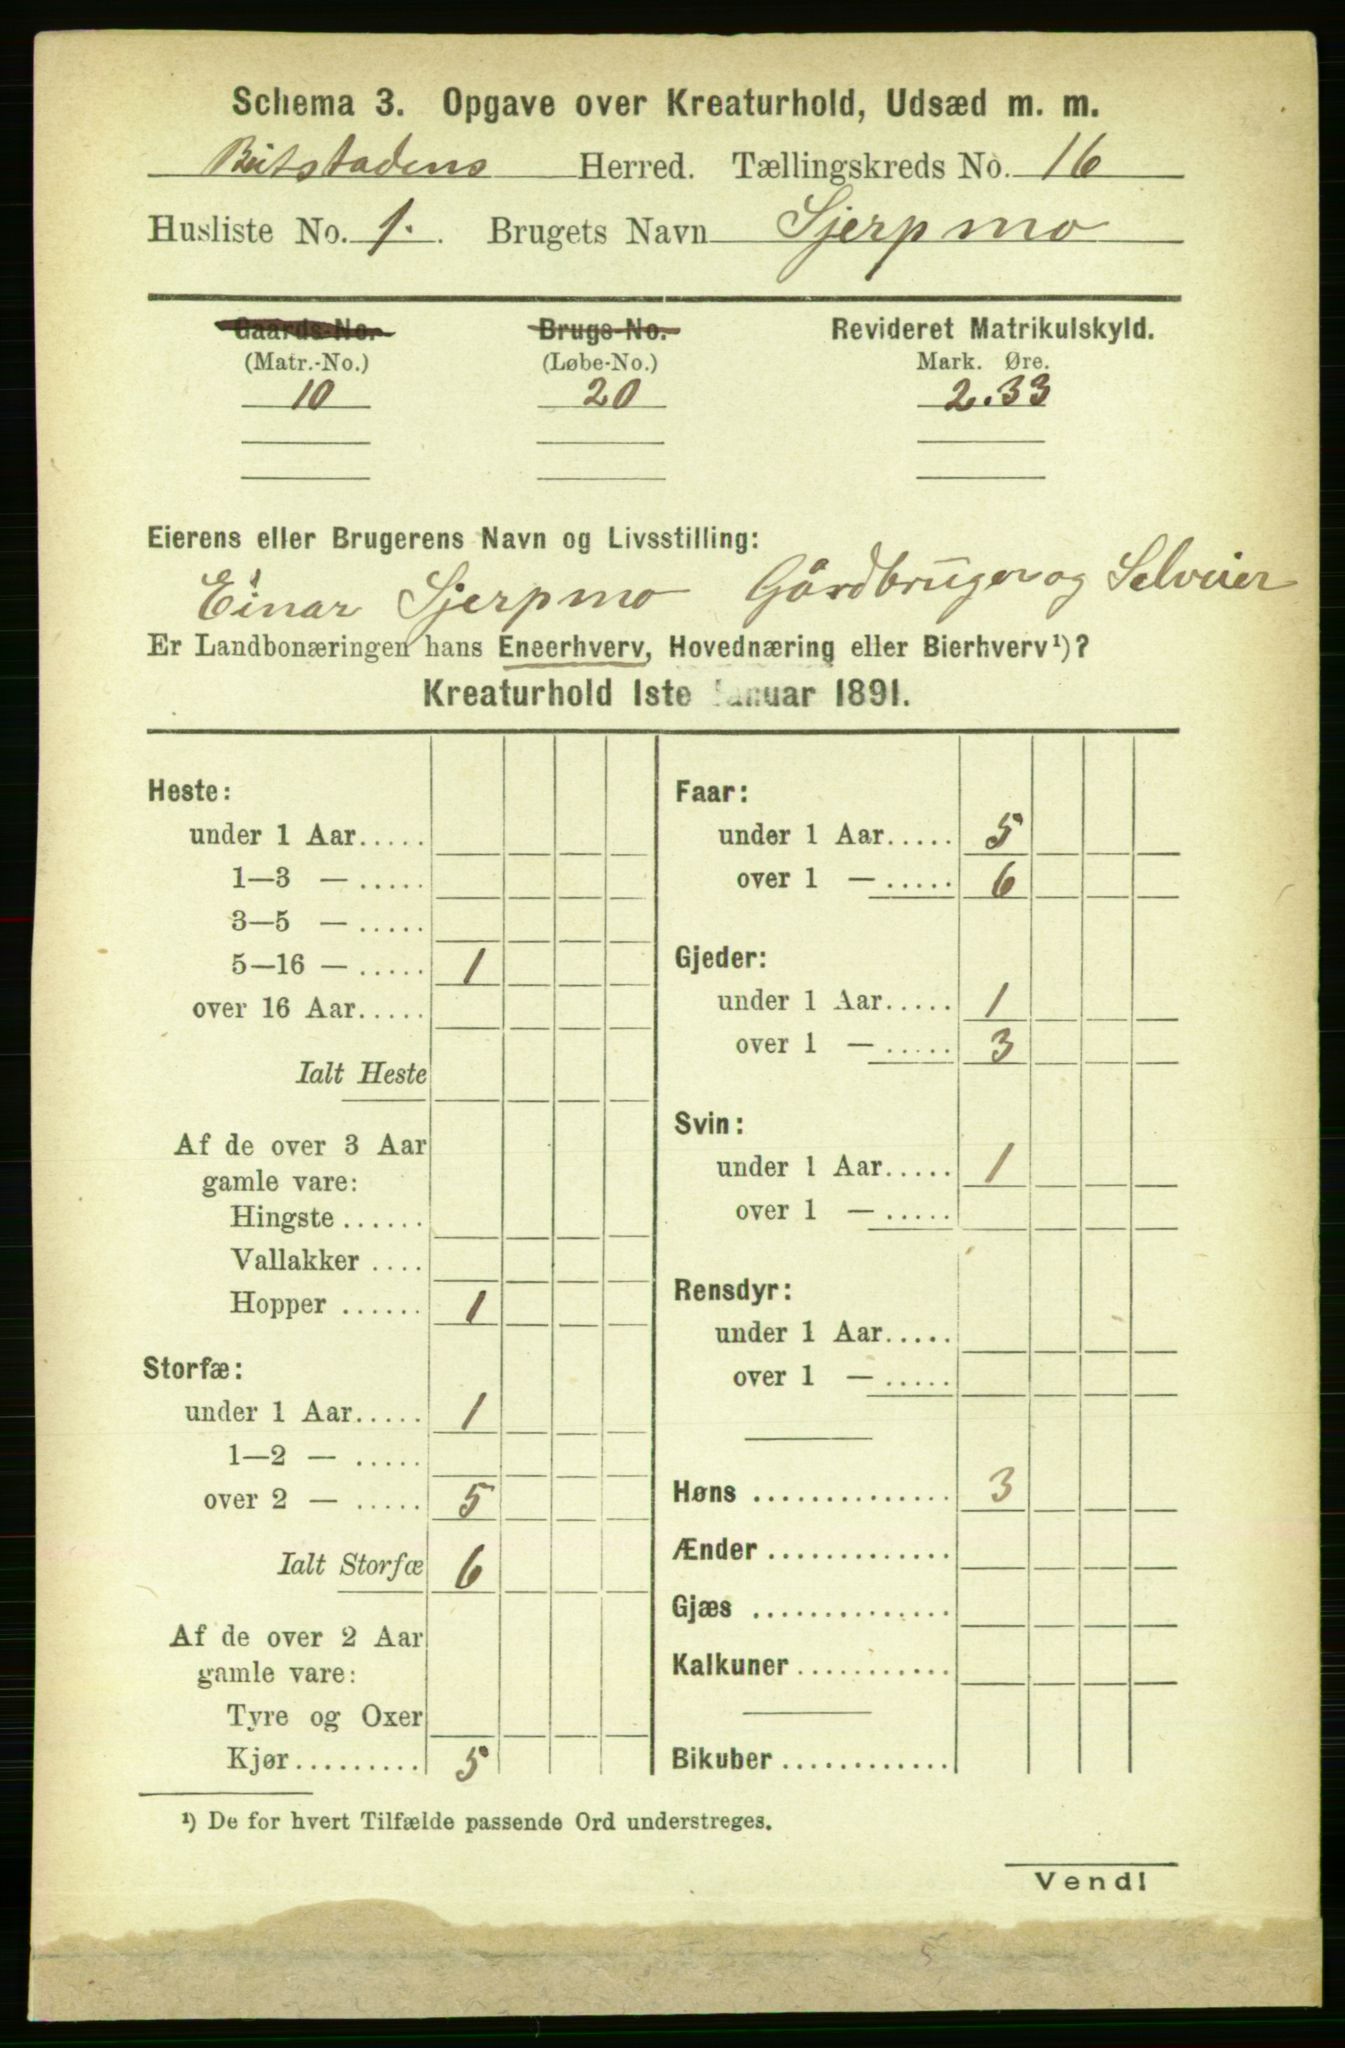 Schema 3. Opgave over Kreaturhold, Udsæd m. m.
Beitstadens Herred. Tællingskreds No. 16
Husliste No. 1. Brugets Navn Sjerpmo
Gaards-No. Brugs-No. Revideret Matrikulskyld.
(Matr.-No.) (Løbe-No.) Mark. Øre.
10 20 2.33
Eierens eller Brugerens Navn og Livsstilling:
Einar Sjerpmo Gårdbruger og Selveier
Er Landbonæringen hans Eneerhverv, Hovednæring eller Bierhverv¹)?
Kreaturhold 1ste Januar 1891.
Heste:
under 1 Aar.....
1—3 — .....
3—5 — .....
5—16 — ..... 1
over 16 Aar.....
Ialt Heste
Af de over 3 Aar
gamle vare:
Hingste ......
Vallakker ....
Hopper ...... 1
Storfæ:
under 1 Aar..... 1
1—2 — .....
over 2 — ..... 5
Ialt Storfæ 6
Af de over 2 Aar
gamle vare:
Tyre og Oxer
Kjør......... 5
Faar:
under 1 Aar..... 5
over 1 — ..... 6
Gjeder:
under 1 Aar..... 1
over 1 — ..... 3
Svin:
under 1 Aar..... 1
over 1 — .....
Rensdyr:
under 1 Aar.....
over 1 — .....
Høns .............. 3
Ænder .............
Gjæs ..............
Kalkuner ...........
Bikuber ............
¹) De for hvert Tilfælde passende Ord understreges.
Vend!
5